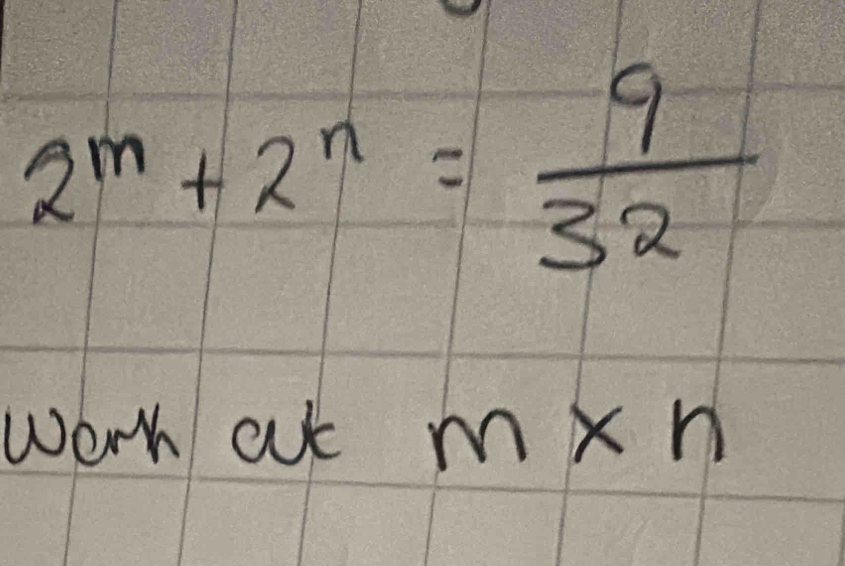 2^m + 2^n = 9/32
Work out m × n